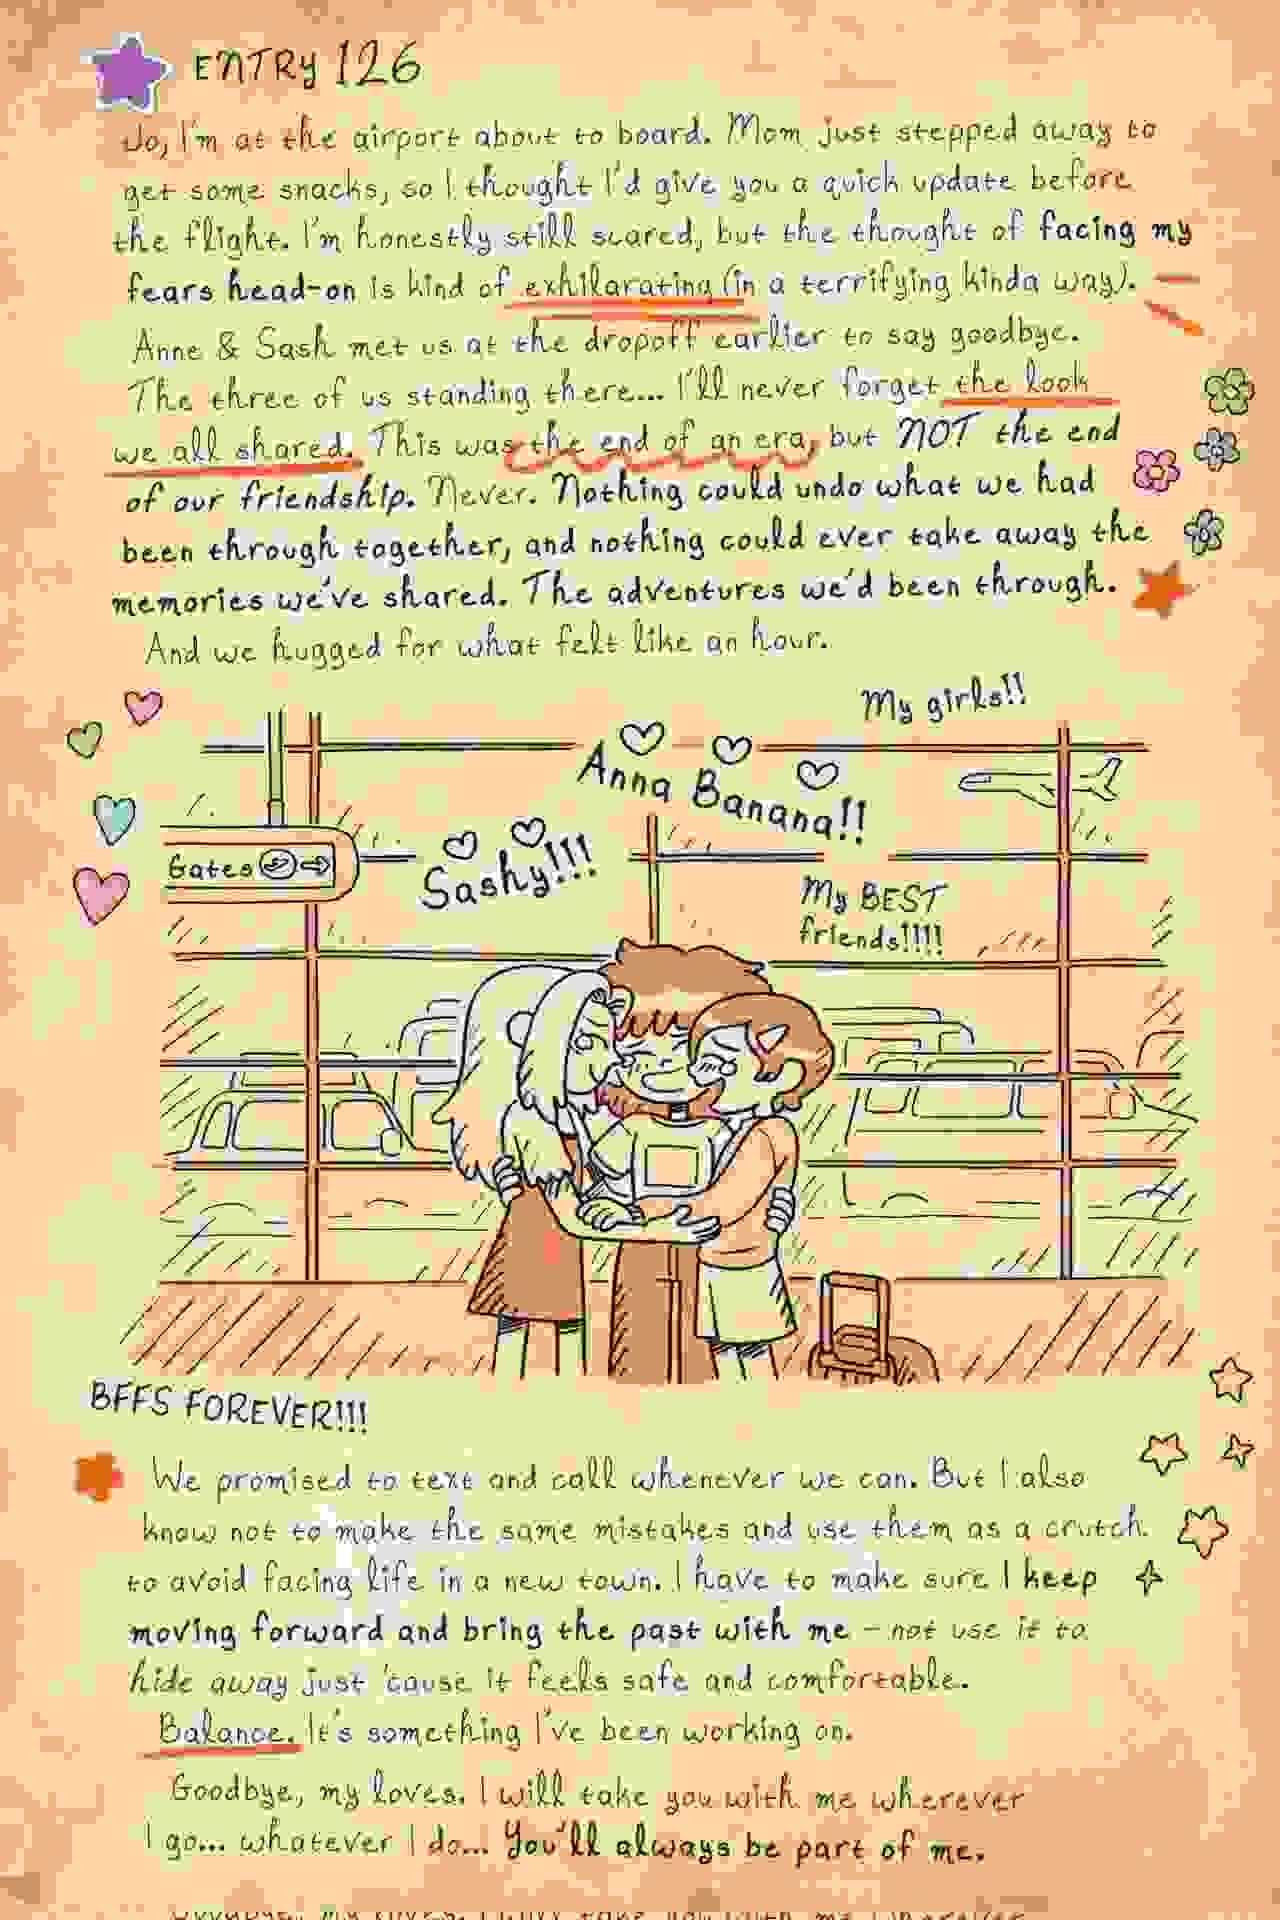 ENTRY 126
Jo, I'm at the airport about to board. Mom just stepped away to
get some snacks, so I thought I'd give you a quick update before
the flight. I'm honestly still scared, but the thought of facing my
fears head-on is kind of exhilarating (in a terrifying kinda way).
Anne & Sash met us at the dropoff earlier to say goodbye.
The three of us standing there... I'll never forget the look
we all shared. This was the end of an era, but NOT the end
of our friendship. Never. Nothing could undo what we had
been through together, and nothing could ever take away the
memories we've shared. The adventures we'd been through.
And we hugged for what felt like an hour.
My girls!!
Anna Banana!!
Gates
Sashy!!!
My BEST
friends!!!!
BFFS FOREVER!!!
We promised to text and call whenever we can. But I also
know not to make the same mistakes and use them as a crutch
to avoid facing life in a new town. I have to make sure I keep
moving forward and bring the past with me - not use it to
hide away just 'cause it feels safe and comfortable.
Balance. It's something I've been working on.
Goodbye, my loves. I will take you with me wherever
I go... whatever I do... You'll always be part of me.